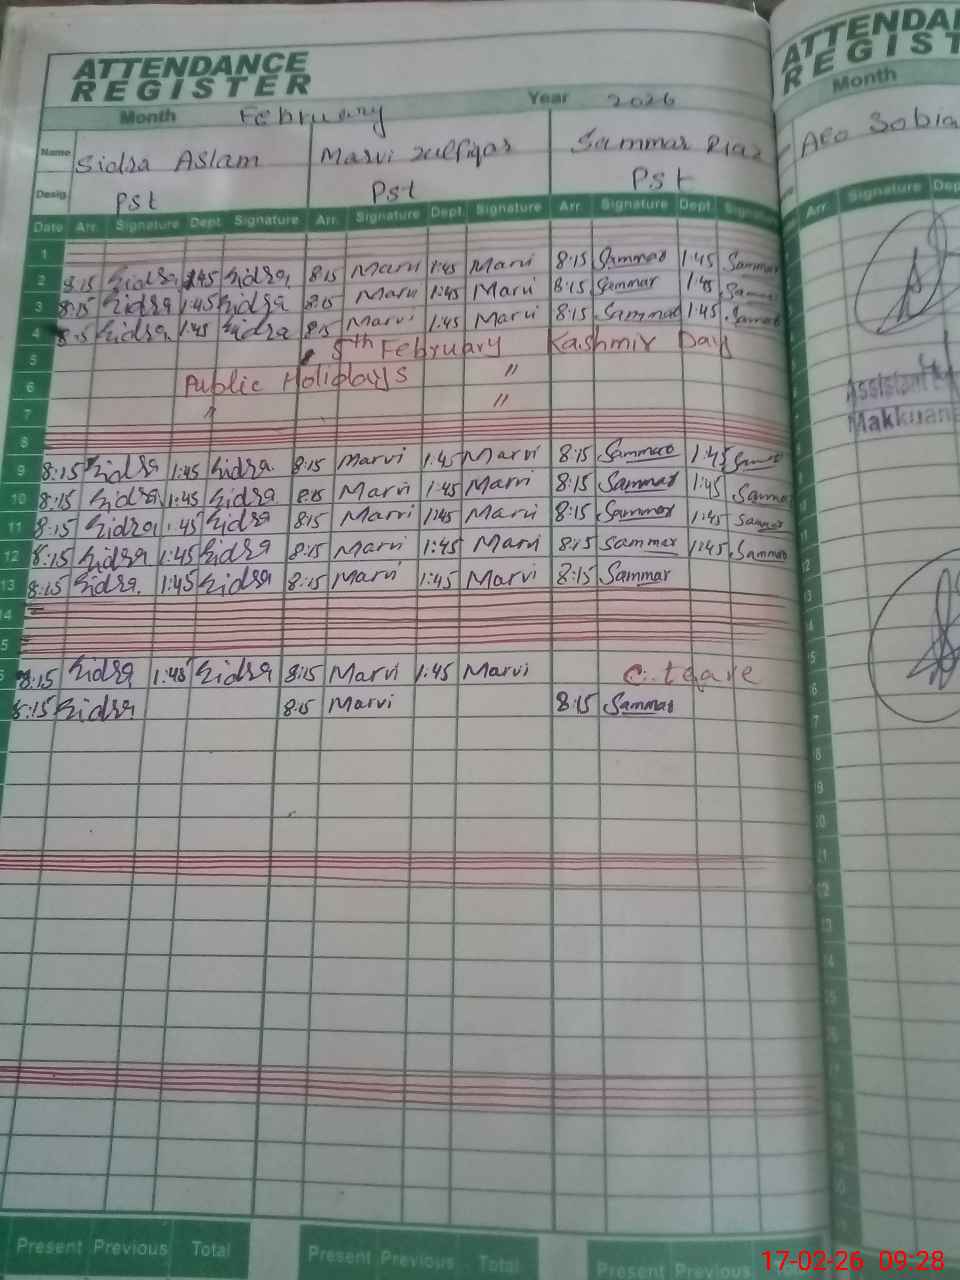 ATTENDANCE
REGISTER
Month February Year 2026
Name Sidra Aslam Marvi Zulfiqar Sammar Riaz
Desig. Pst Pst Pst
Date Arr. Signature Dept. Signature Arr. Signature Dept. Signature Arr. Signature Dept. Signature
1
2 8:15 Sidra 1:45 Sidra 8:15 Marvi 1:45 Marvi 8:15 Sammar 1:45 Sammar
3 8:15 Sidra 1:45 Sidra 8:15 Marvi 1:45 Marvi 8:15 Sammar 1:45 Sammar
4 8:15 Sidra 1:45 Sidra 8:15 Marvi 1:45 Marvi 8:15 Sammar 1:45 Sammar
5 5th February Kashmir Day
6 Public Holidays "
7 " "
8
9 8:15 Sidra 1:45 Sidra 8:15 Marvi 1:45 Marvi 8:15 Sammar 1:45 Sammar
10 8:15 Sidra 1:45 Sidra 8:15 Marvi 1:45 Marvi 8:15 Sammar 1:45 Sammar
11 8:15 Sidra 1:45 Sidra 8:15 Marvi 1:45 Marvi 8:15 Sammar 1:45 Sammar
12 8:15 Sidra 1:45 Sidra 8:15 Marvi 1:45 Marvi 8:15 Sammar 1:45 Sammar
13 8:15 Sidra 1:45 Sidra 8:15 Marvi 1:45 Marvi 8:15 Sammar
14
5
8:15 Sidra 1:45 Sidra 8:15 Marvi 1:45 Marvi C. leave
8:15 Sidra 8:15 Marvi 8:15 Sammar
Present Previous Total Present Previous Total Present Previous
ATTENDA
REGIST
Month
AEO Sobia
Arr. Signature Dep
Assistant
Makkuana
17-02-26 09:28